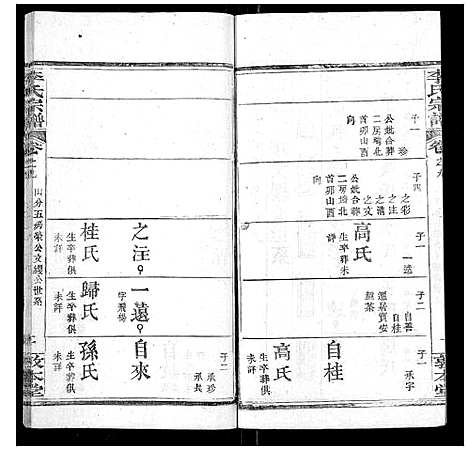 李氏宗譜
卷之九
敦本堂
子一
珍
公妣合葬
二房塆北
首卯山酉
向
子四
之彩
之文
之清
之文
公妣合葬
二房塆北
首卯山酉
向
子一
一遠
高氏
生卒葬未
詳
子二
自善
自桂
遷居寶安
子一
承宇
自桂
高氏
生卒葬俱
未詳
之注
桂氏
生卒葬俱
未詳
一遠
字飛楊
歸氏
生卒葬俱
未詳
子二
承珍
自來
孫氏
生卒葬俱
未詳
李氏宗譜
卷之九
四分五房榮公文纓公世系
敦本堂